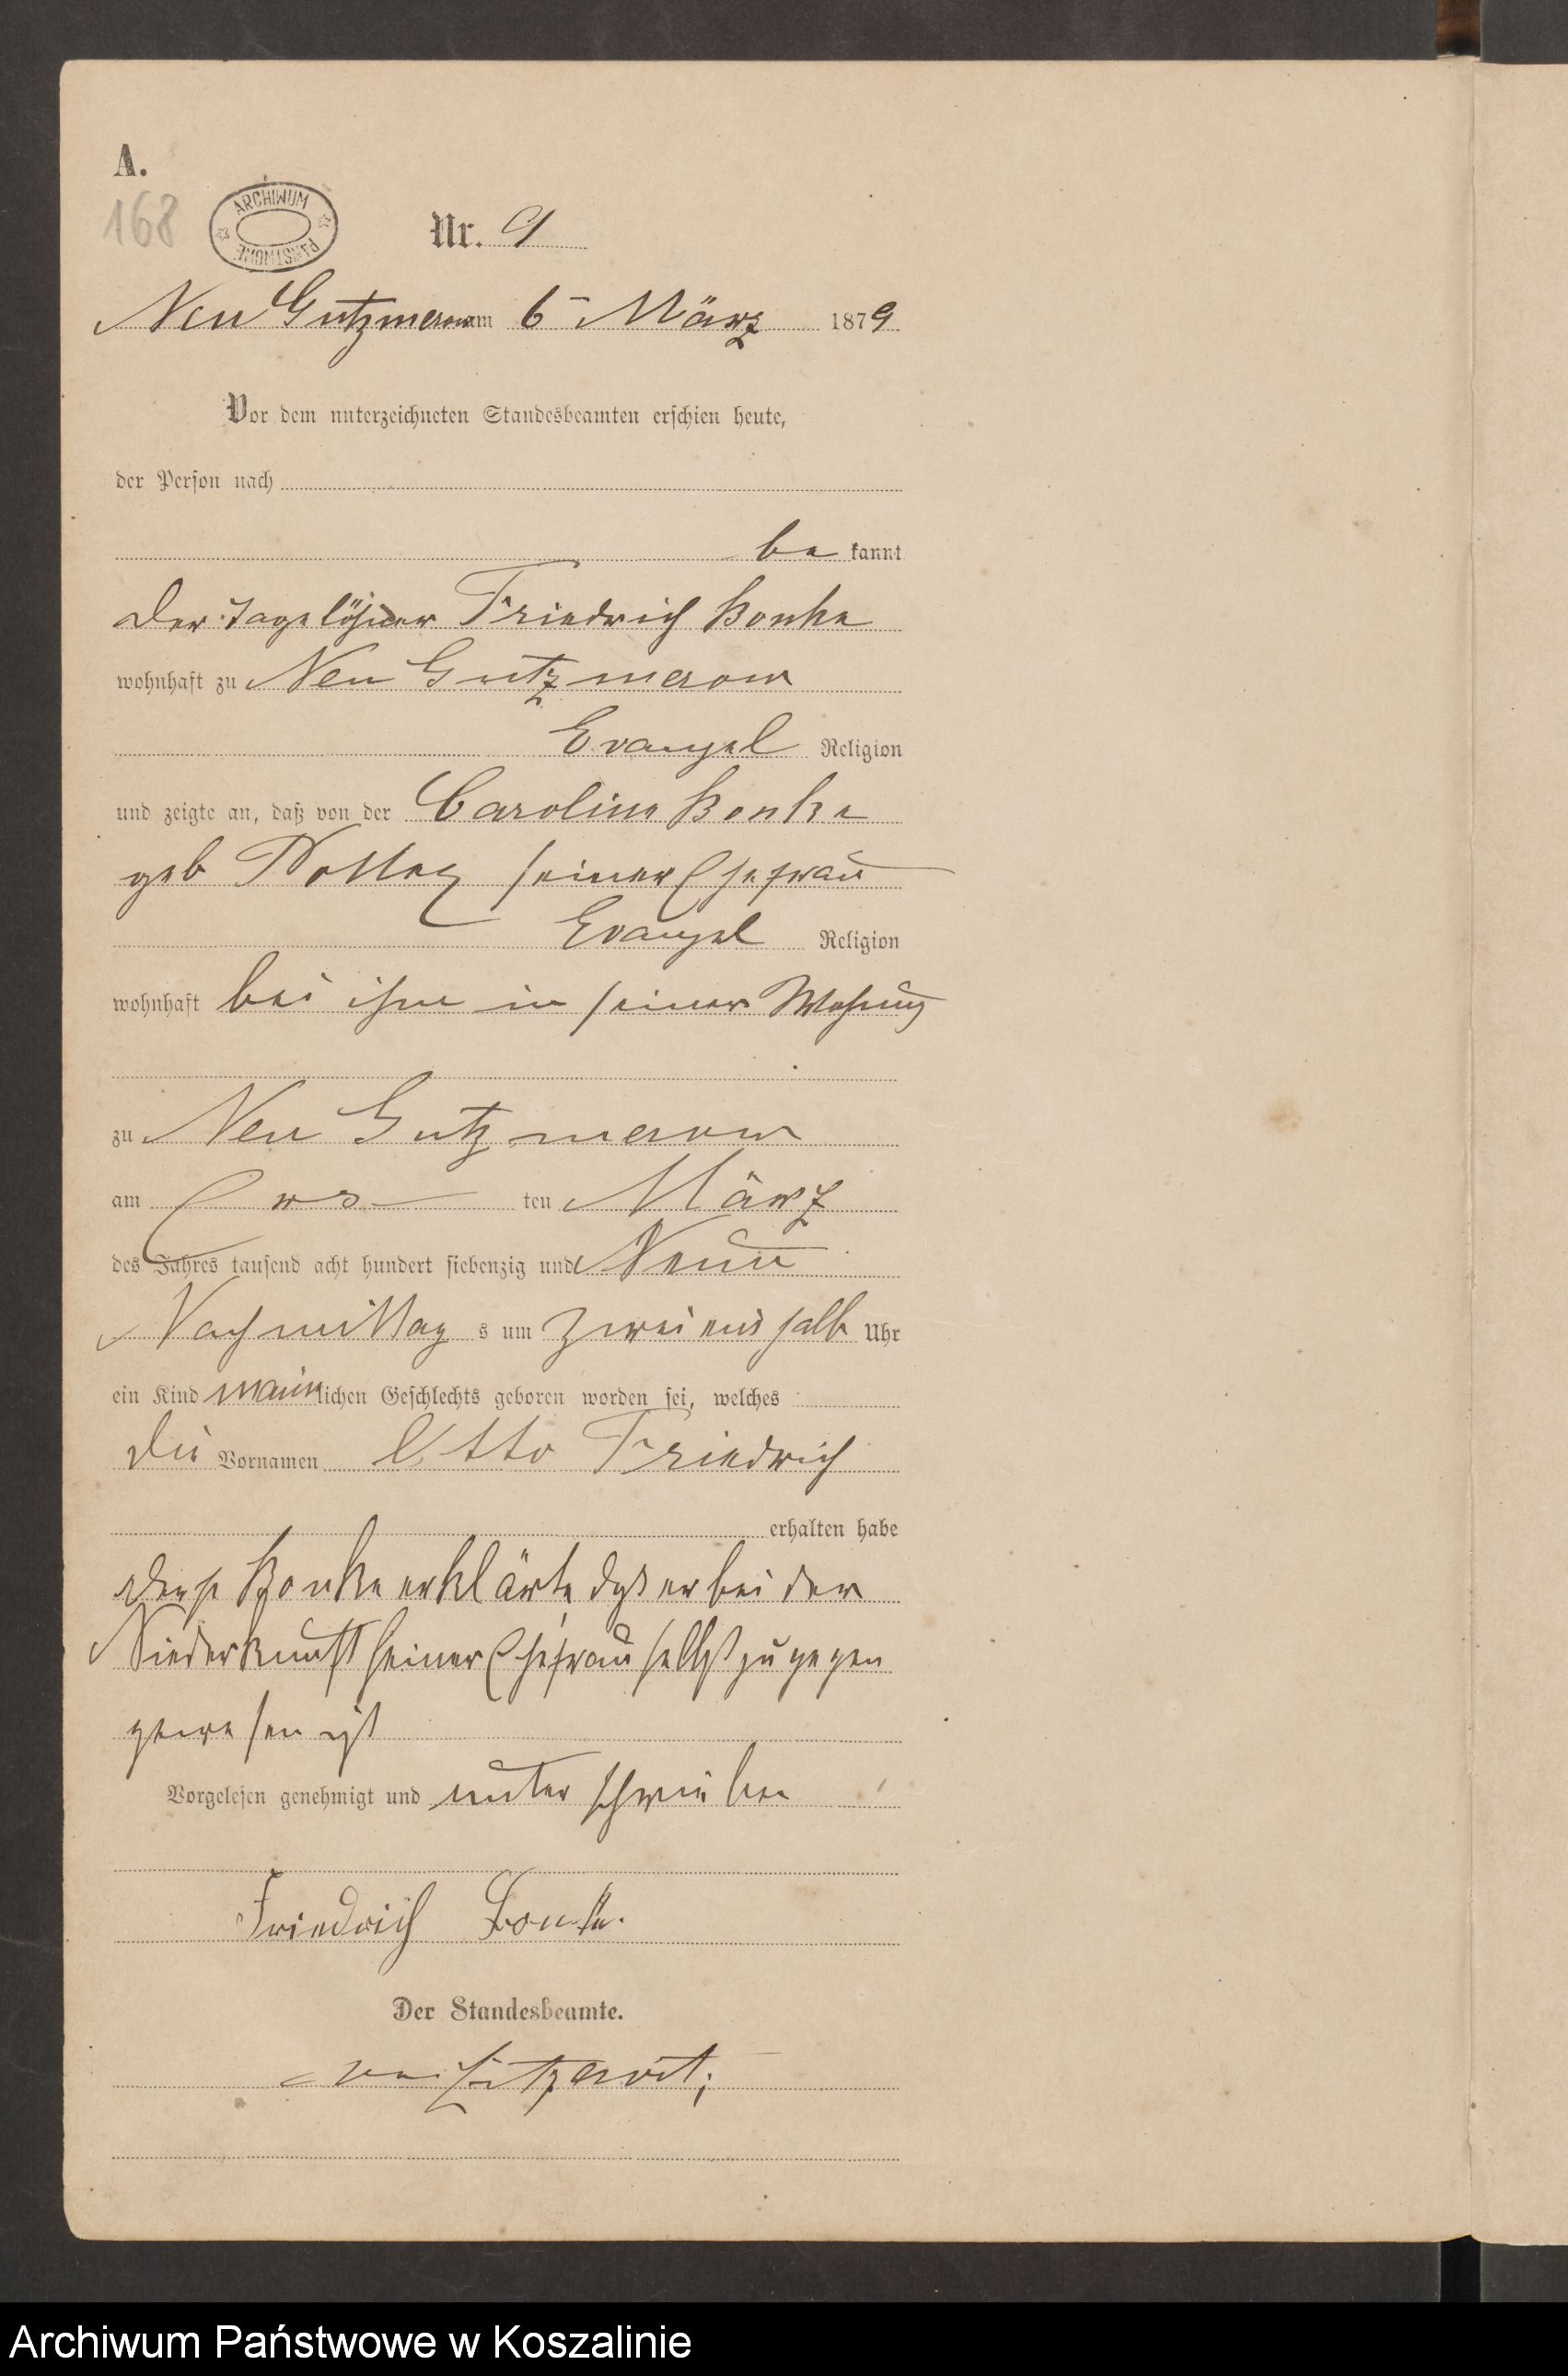 A.
168
ARCHIWUM PAŃSTWOWE
Nr. 9
Neu Gutzmerow am 6 März 1879
Vor dem unterzeichneten Standesbeamten erschien heute,
der Person nach
be kannt
Der Tagelöhner Friedrich Bonke
wohnhaft zu Neu Gutzmerow
Evangel Religion
und zeigte an, daß von der Caroline Bonke
geb seiner Ehefrau
Evangel Religion
wohnhaft bei ihm in seiner Wohnung
zu Neu Gutzmerow
am Ers ten März
des Jahres tausend acht hundert siebenzig und Neun
Nachmittag s um Zwei ein halb Uhr
ein Kind männlichen Geschlechts geboren worden sei, welches
die Vornamen Otto Friedrich
erhalten habe
Bonke erklärte daß er bei der
Niederkunft seiner Ehefrau selbst zu gegen
gewesen ist
Vorgelesen genehmigt und unterschrieben
Friedrich Bonke.
Der Standesbeamte.
Archiwum Państwowe w Koszalinie